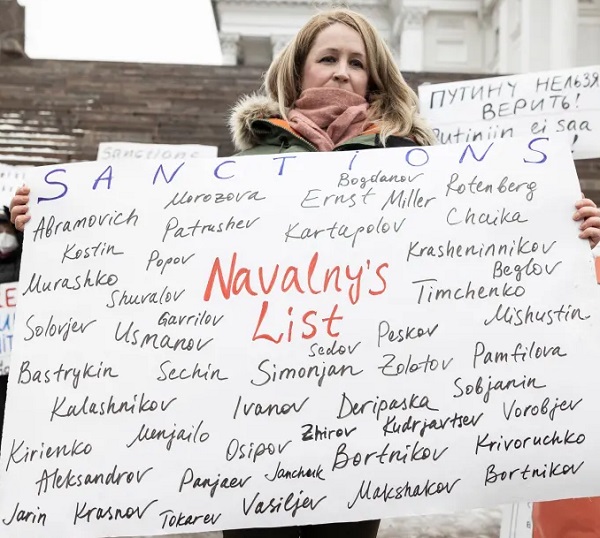 SANCTIONS
Abramovich Morozova Ernst Bogdanov Miller Rotenberg
Kostin Patrushev Kartapolov Chaika
Murashko Popov Krasheninnikov
Shuvalov Navalny's Timchenko Beglov
Solovjev Gavrilov List Mishustin
Usmanov Sedov Peskov
Bastrykin Sechin Simonjan Zolotov Pamfilova
Kalashnikov Ivanov Deripaska Sobjanin
Kirienko Menjailo Osipov Zhirov Kudrjavtsev Vorobjev
Aleksandrov Panjaev Bortnikov Krivoruchko
Jarin Krasnov Tokarev Vasiljev Makshakov Bortnikov
ПУТИНУ НЕЛЬЗЯ
ВЕРИТЬ!
Putiniin ei saa